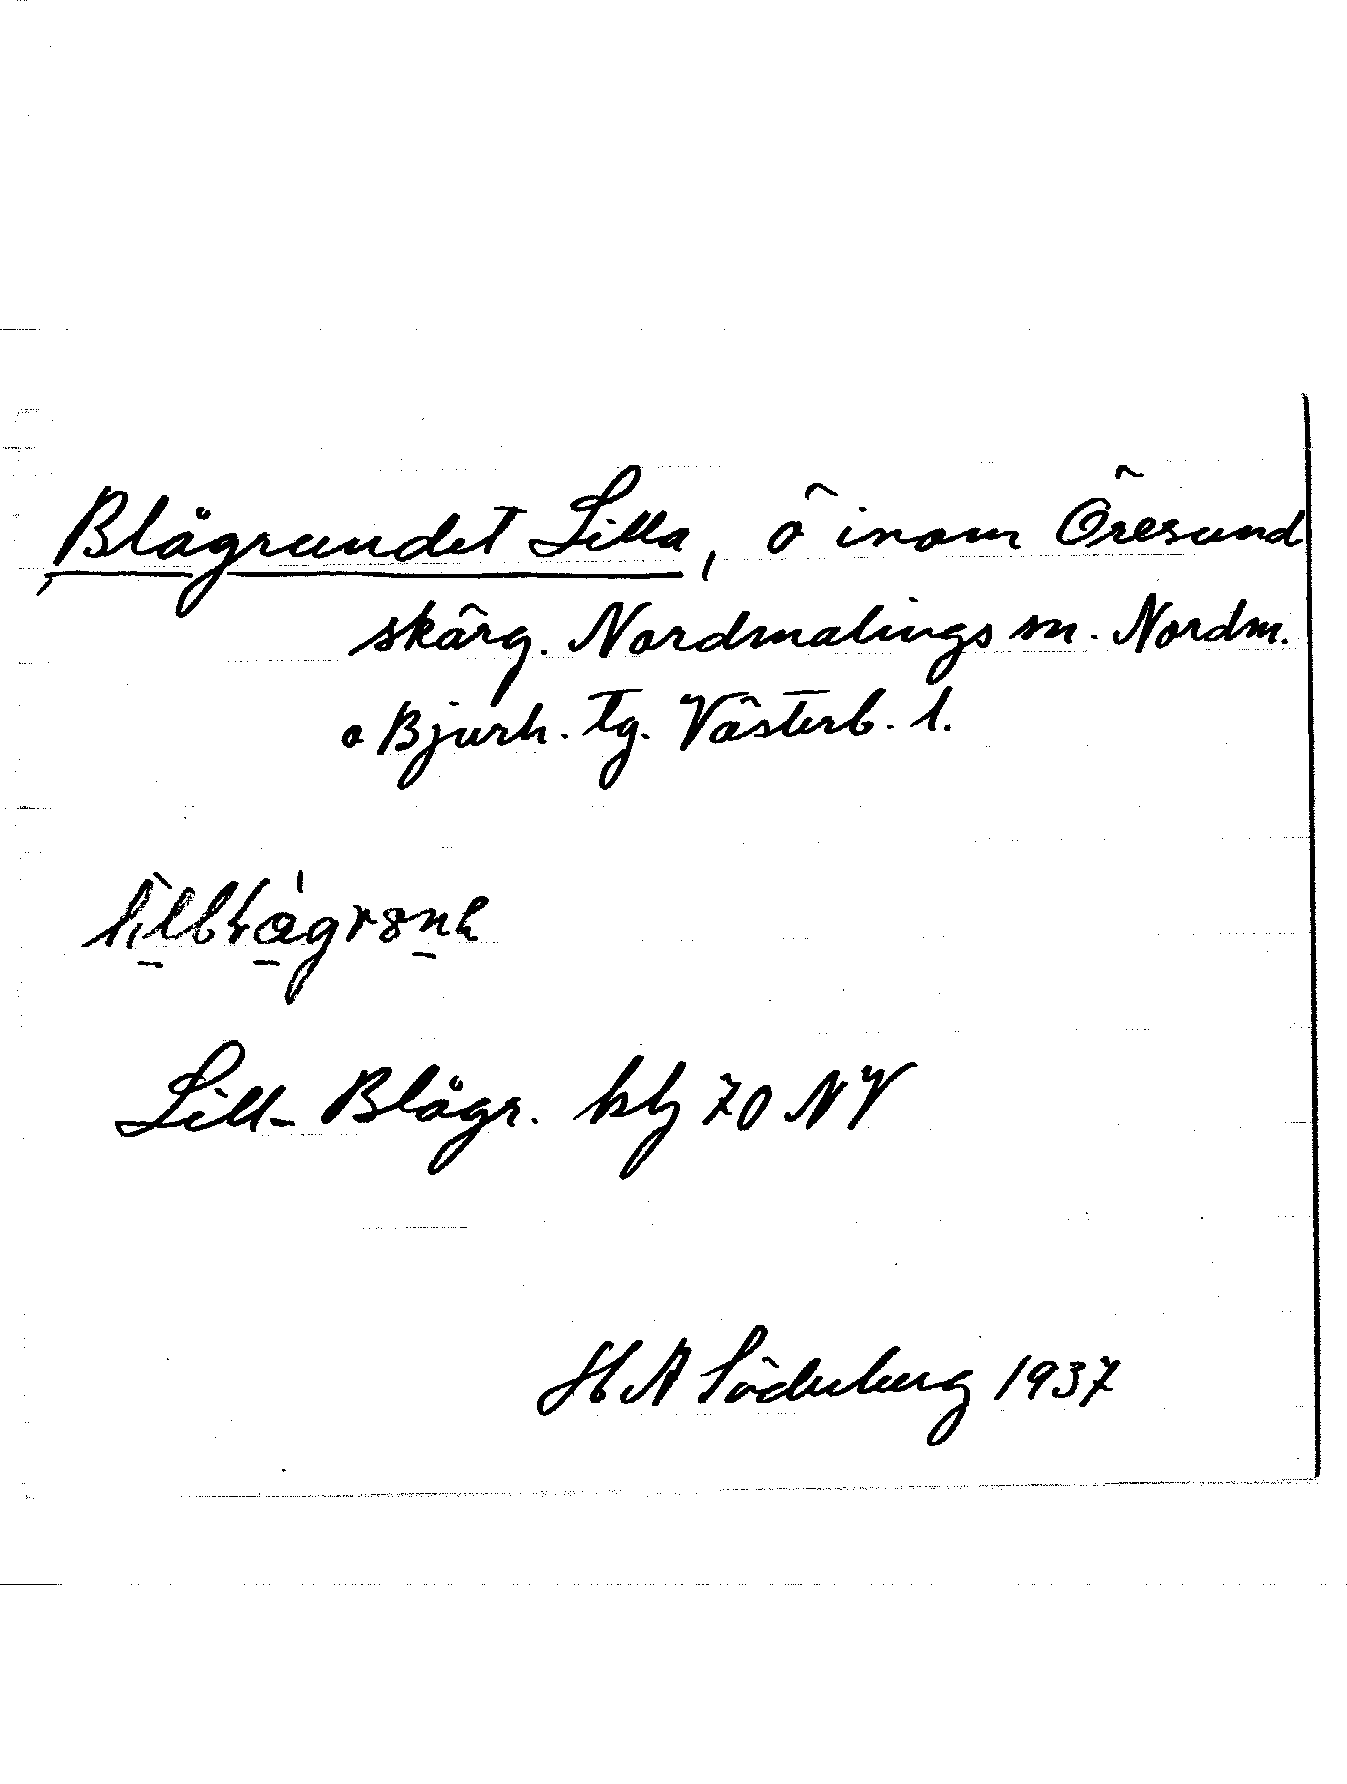 Blågrundet Lilla, ö inom Öresund
skärg. Nordmalings sn. Nordm.
o Bjurh. tg. Västerb. l.
Lill-Blågr. kbl 70 NV
H A Söderberg 1937